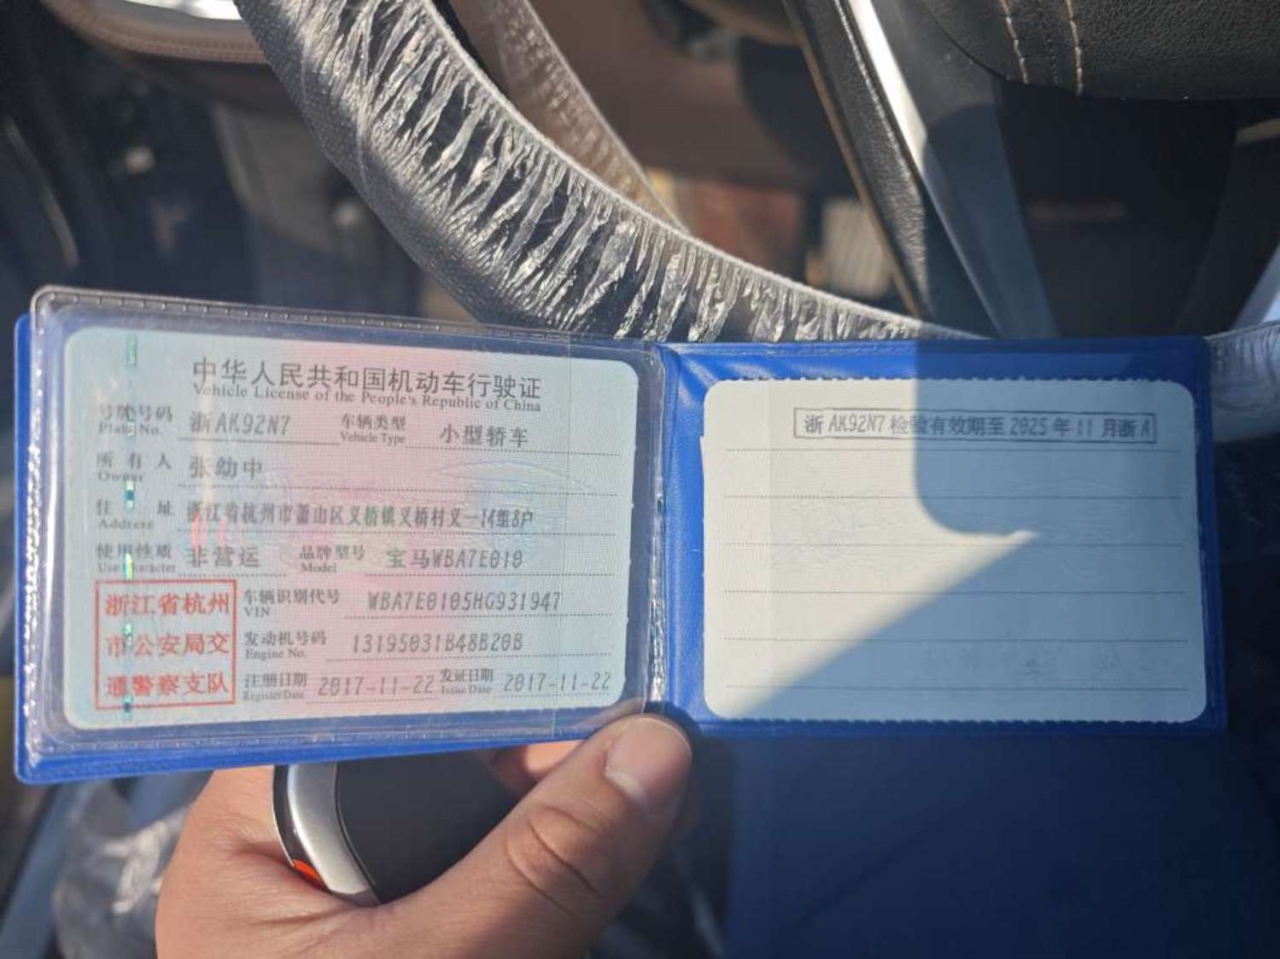 中华人民共和国机动车行驶证
Vehicle License of the People's Republic of China
号牌号码 浙AK92N7 车辆类型 小型轿车
Plate No. Vehicle Type
所有人 张幼中
Owner
住址 浙江省杭州市萧山区义桥镇义桥村义一14组8户
Address
使用性质 非营运 品牌型号 宝马WBA7E010
Use Character Model
浙江省杭州 车辆识别代号 WBA7E0105HG931947
VIN
市公安局交 发动机号码 13195031B48B20B
Engine No.
通警察支队 注册日期 2017-11-22 发证日期 2017-11-22
Register Date Issue Date
浙AK92N7 检验有效期至2025年11月浙A